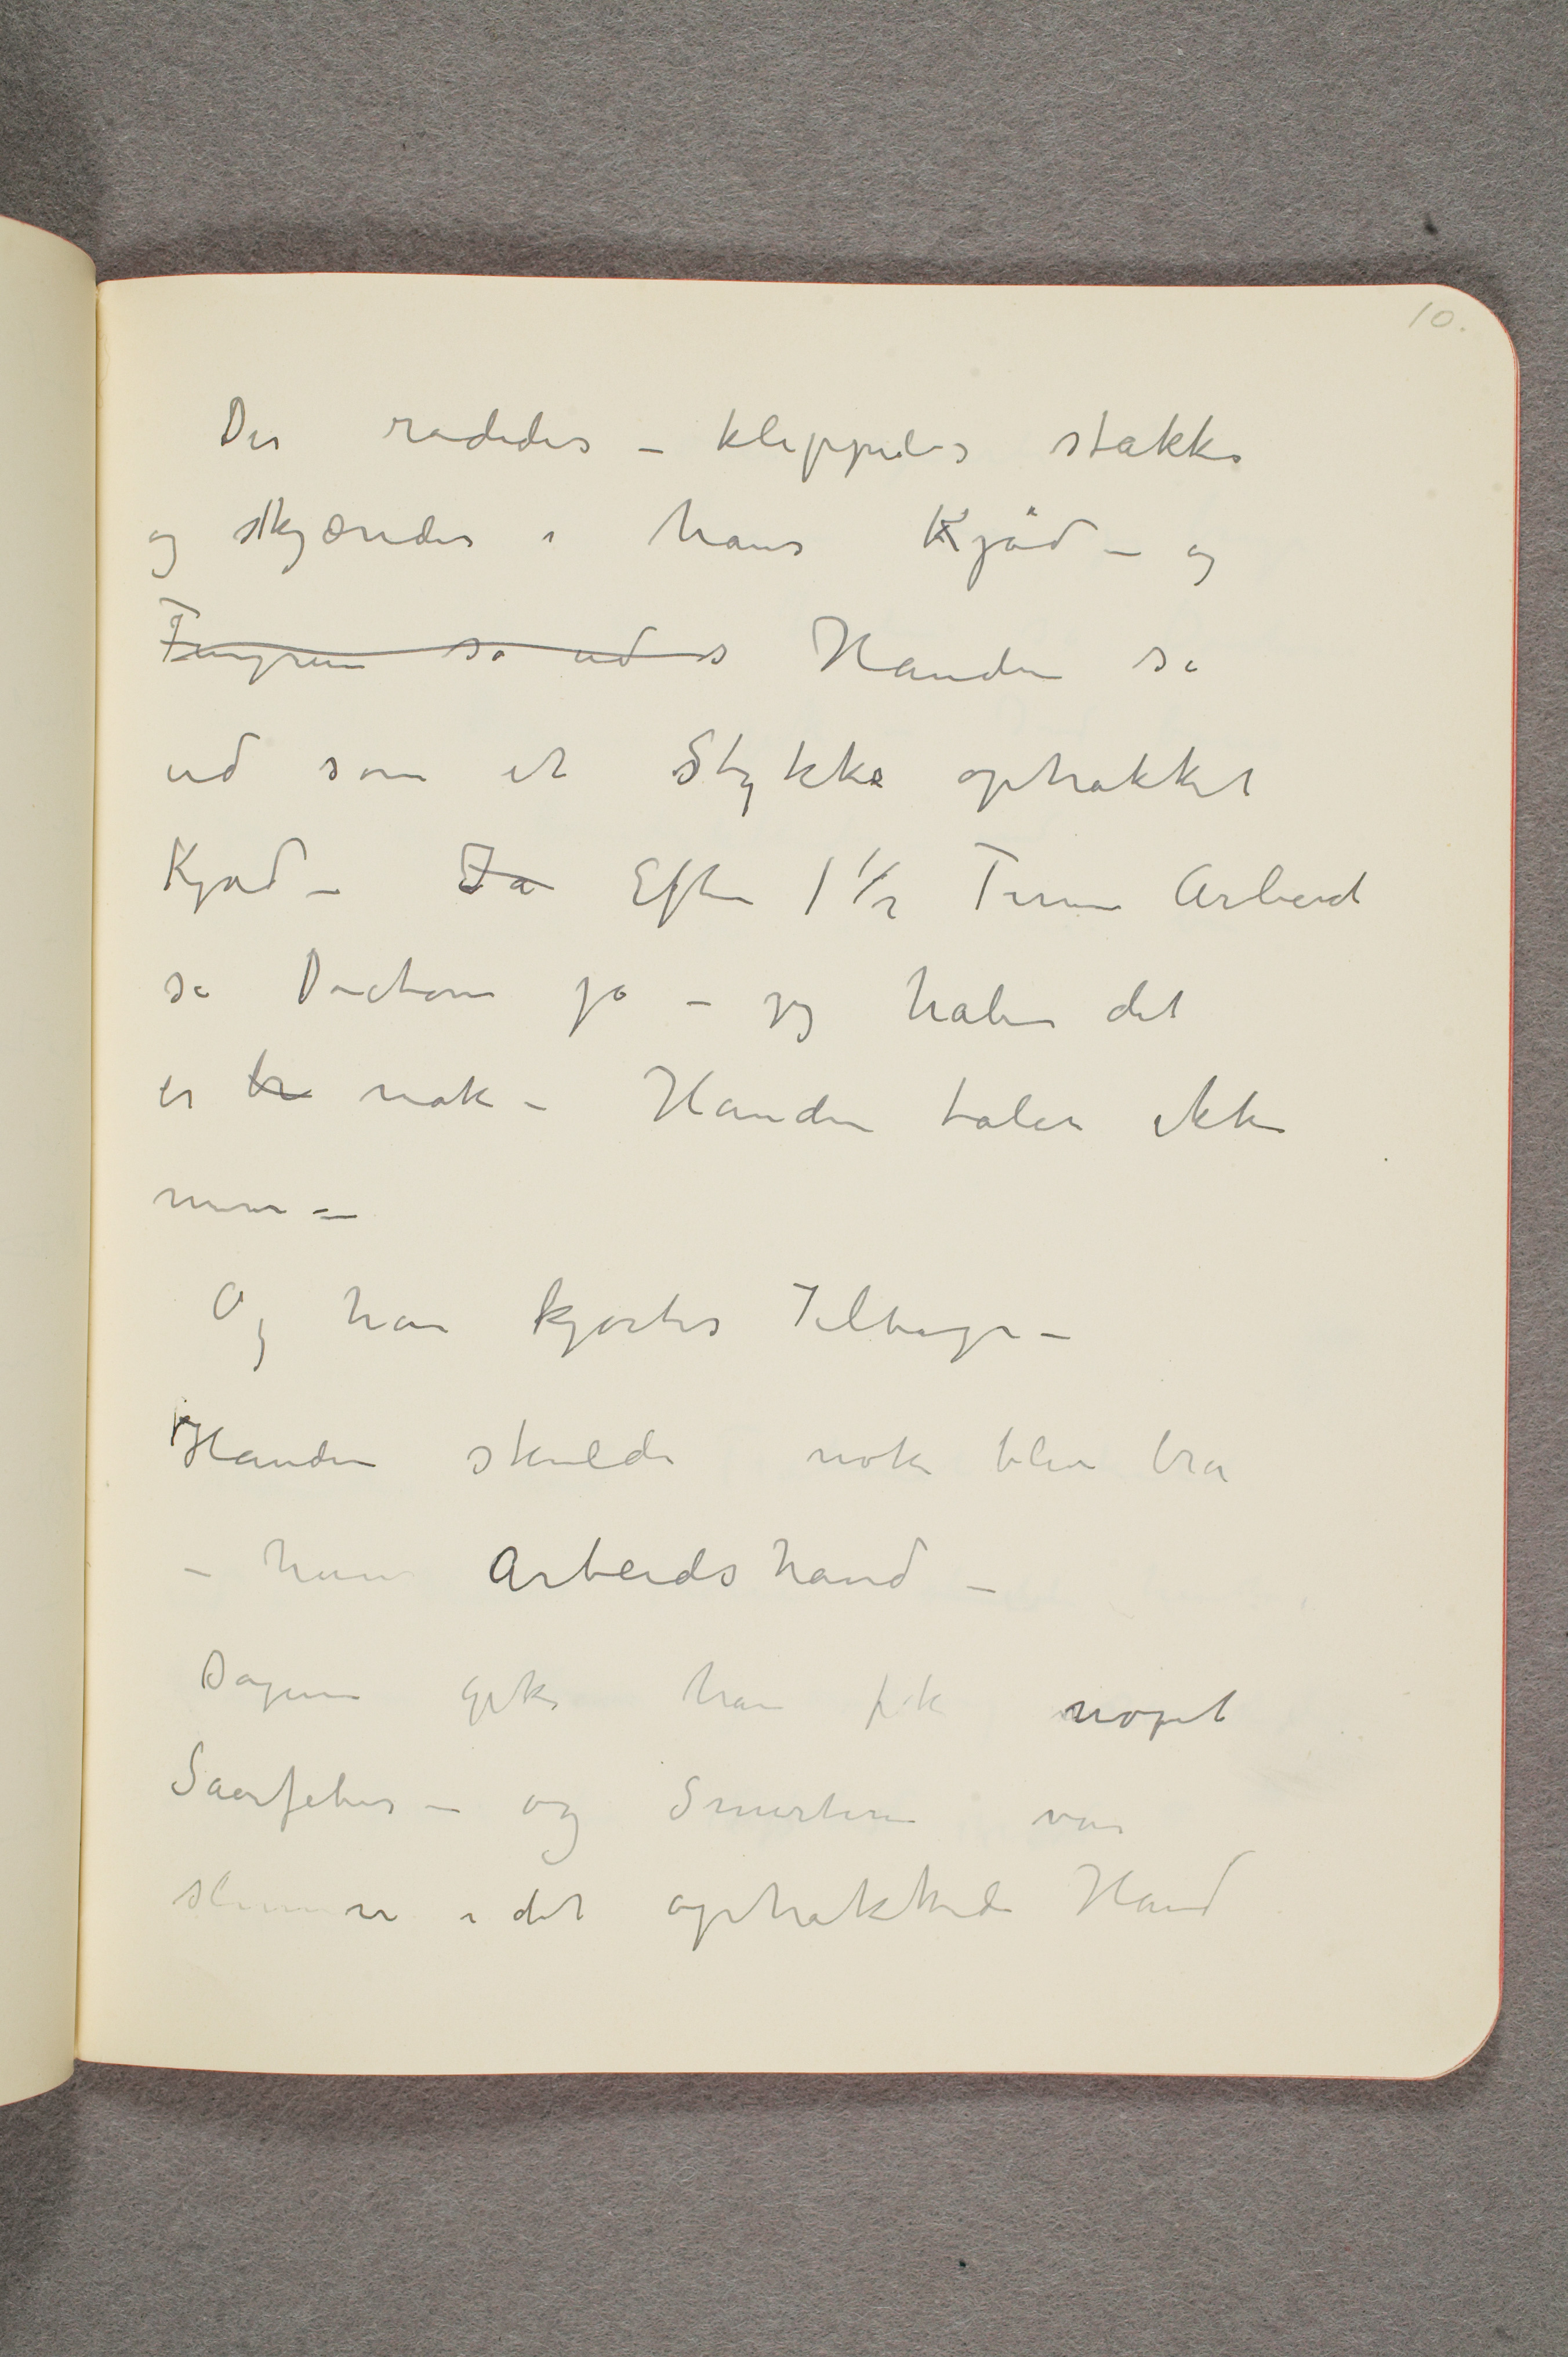 10.
Der rodedes – klippedes stakks
og skjæredes i hans Kjød – og
Fingren så ud s Handen så
ud som et Stykke ophakket
Kjød – Ja Efter 1 1/2 Times Arbeid
sa Doctoren ja – jeg håber det
er br nok – Handen taler ikke
mere –
Og han kjørtes Tilbage –
Handen skulde nok blive bra
– hans Arbeidshand –
Dagene gik han fik noget
Saarfeber – og Smerterne var
slemme i det ophakkede Hand